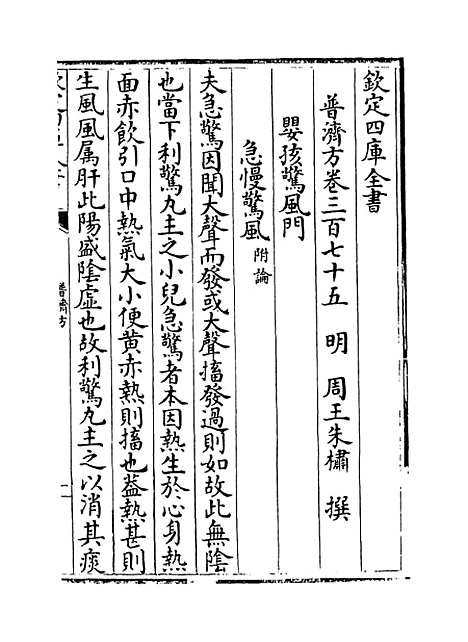 欽定四庫全書
普濟方卷三百七十五 明 周王朱橚 撰
嬰孩驚風門
急慢驚風附論
夫急驚因聞大聲而發或大聲搐發過則如故此無陰
也當下利驚丸主之小兒急驚者本因熱生於心身熱
面赤飲引口中熱氣大小便黄赤熱則搐也葢熱甚則
生風風屬肝此陽盛陰虛也故利驚丸主之以消其痰
普濟方